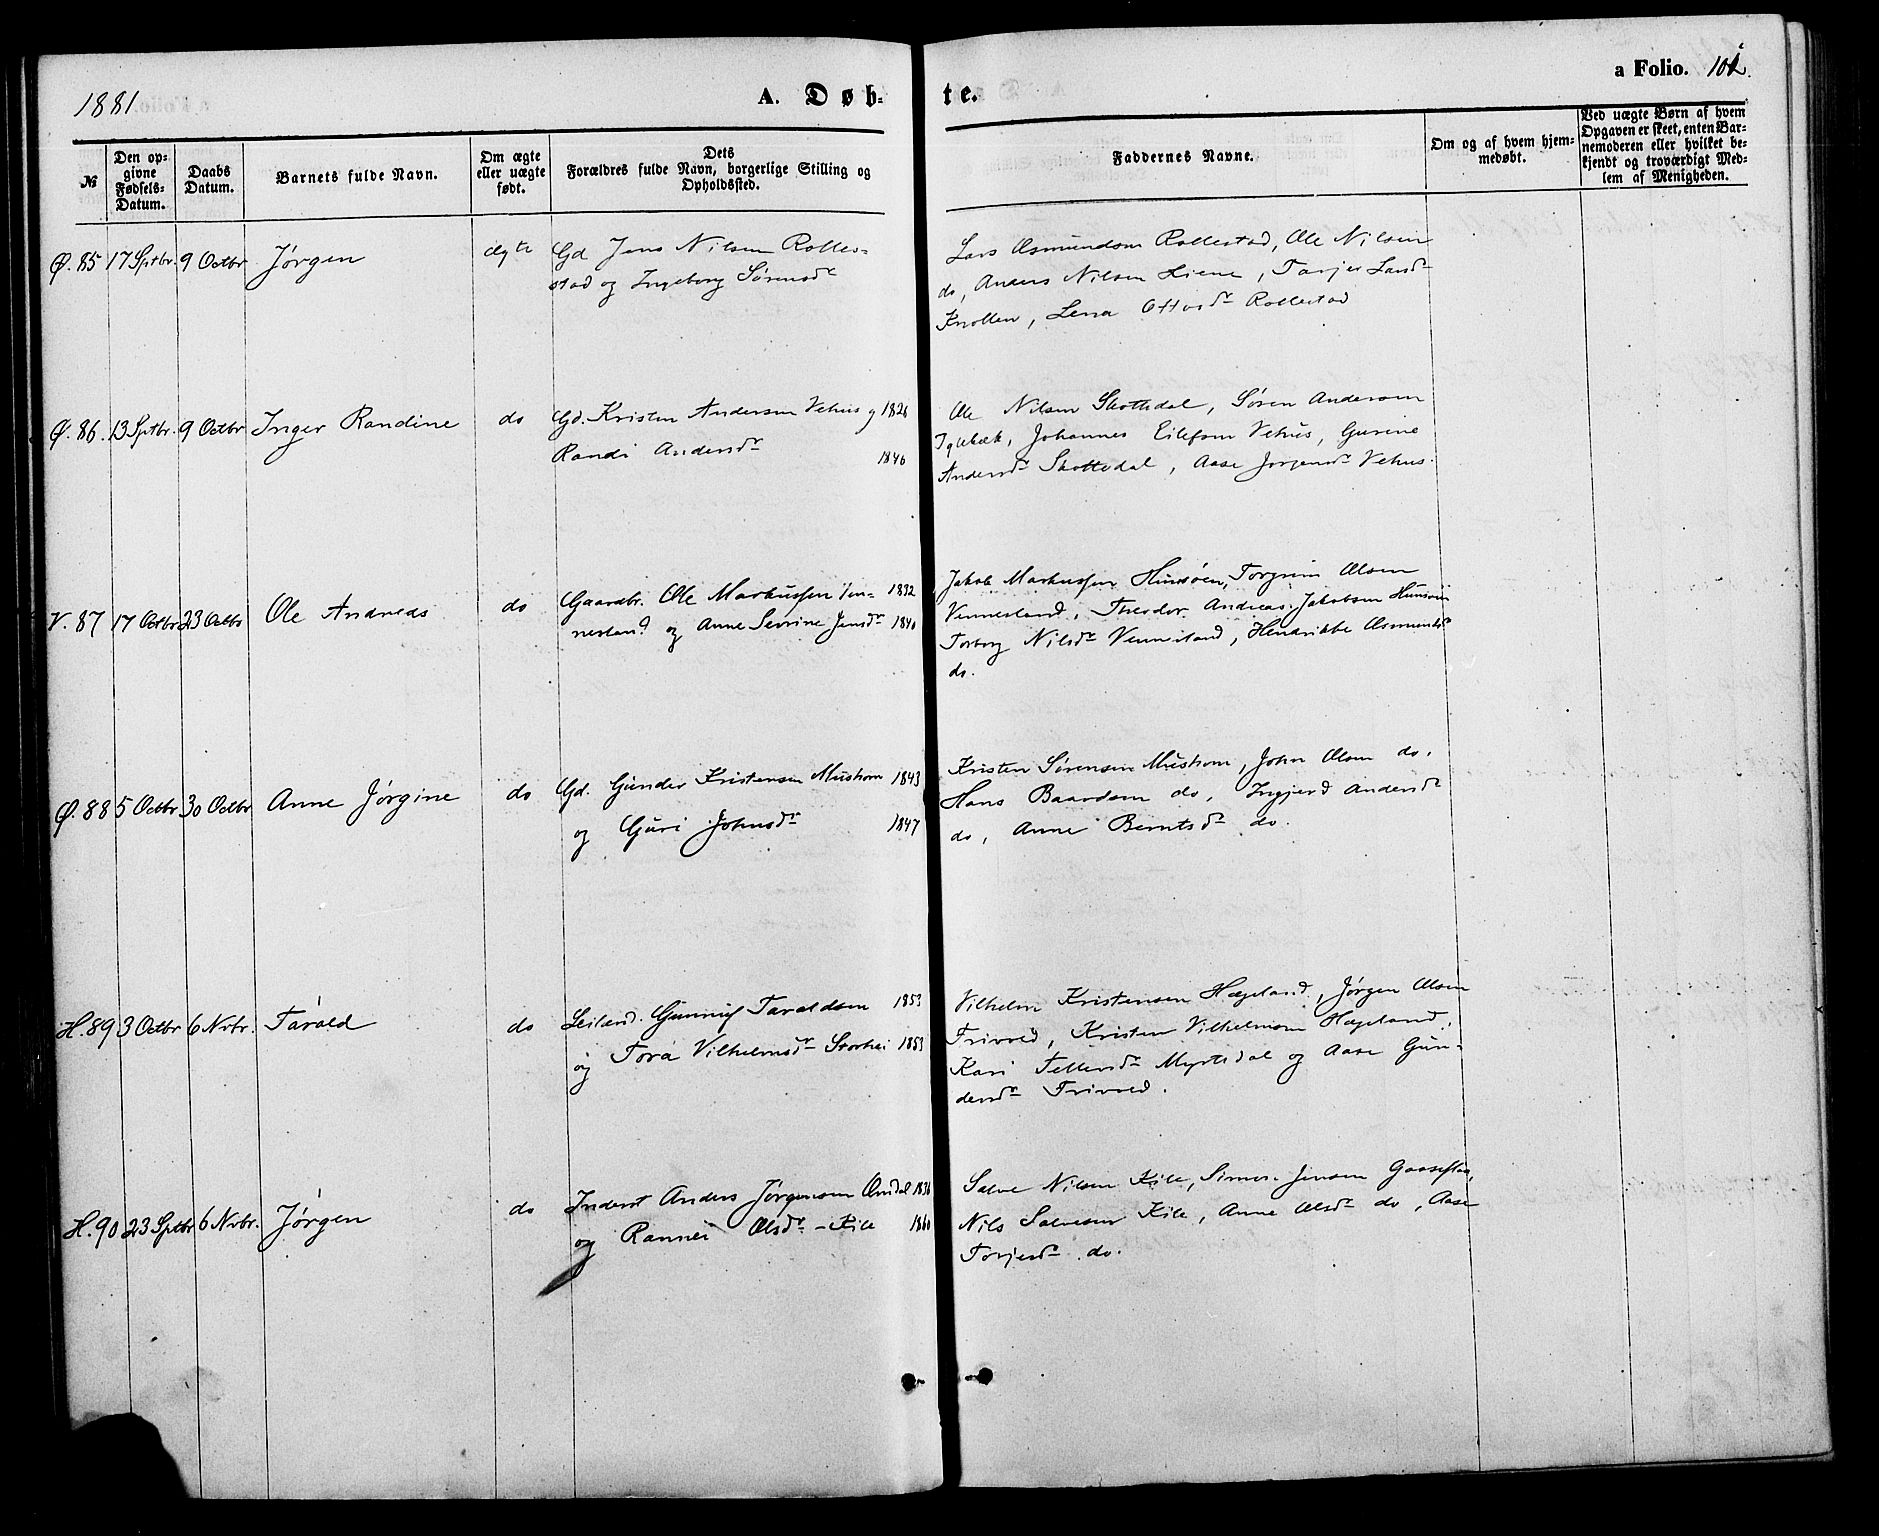 1881.
A. Døb-
te.
a Folio. 101.
№
Den op-
givne
Fødsels-
Datum.
Daabs
Datum.
Barnets fulde Navn.
Om ægte
eller uægte
født.
Dets
Forældres fulde Navn, borgerlige Stilling og
Opholdssted.
Faddernes Navne.
Om og af hvem hjem-
medøbt.
Ved uægte Børn af hvem
Opgaven er skeet, enten Bar-
nemoderen eller hvilket be-
kjendt og troværdigt Med-
lem af Menigheden.
Ø. 85 17 Sptbr. 9 Octbr Jørgen ægte Gd Jens Nilsen Rolles-
stad og Ingeborg Sørensdr
Lars Osmundsen Rollestad, Ole Nilsen
do, Anders Nilsen Liene, Tarjer Larsdr
Knollen, Lena Ottosdr Rollestad
Ø. 86. 13 Sptbr. 9 Octbr Inger Randine do Gd. Kristen Andersen Vehus og 1826
Randi Andersdr 1846
Ole Nilsen Skottedal, Søren Andersen
Iglebæk, Johannes Eilefsen Vehus, Gurine
Andersdr Skottedal, Aase Jørgensdr Vehus.
V. 87 17 Octbr 23 Octbr Ole Andreas do Gaardbr. Ole Markussen Ven- 1832
nesland og Anne Sevrine Jensdr 1840
Jakob Markussen Hunsøen, Torgrim Olsen
Vennesland, Theodor Andreas Jakobsen Hunsøen
Torborg Nilsdr Vennesland, Hendrikke Osmundsdr
do.
Ø. 88 5 Octbr 30 Octbr Anne Jørgine do Gd. Gunder Kristensen Mushom 1843
og Guri Johnsdr 1847
Kristen Sørensen Mushom, John Olsen do.
Hans Baardsen do, Ingjerd Andersdr
do, Anne Berntsdr do.
H. 89 3 Octbr 6 Nvbr. Tarald do Leiland. Gunnuf Taraldsen 1853
og Tora Vilhelmsdr Storhei 1853
Vilhelm Kristensen Hægeland, Jørgen Olsen
Trivold, Kristen Vilhelmsen Hægeland,
Kari Tellevsdr Myrtsdal og Aase Gun-
dersdr Trivold.
H. 90 23 Sptbr 6 Nvbr. Jørgen do Inderst Anders Jørgensen Omdal 1836
og Rannei Olsdr - Kile 1860
Salve Nilsen Kile, Simon Jensen Gaaseflaa,
Nils Salvesen Kile, Anne Olsdr do, Aase
Torjersdr do.